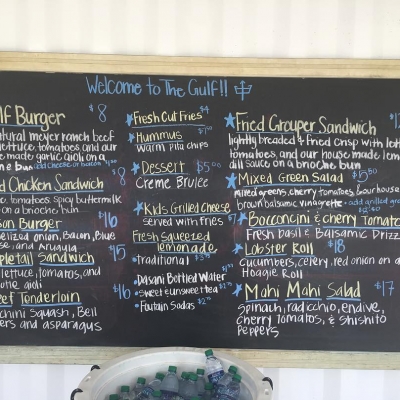 Welcome to The Gulf!!
lf Burger $8
natural meyer ranch beef
lettuce, tomatoes, and our
made garlic aioli on a
bun add cheese or bacon
d Chicken Sandwich $8
tomatoes, spicy buttermilk
on a brioche bun
son Burger $16
melized onion, Bacon, Blue
and Arugula
pletail Sandwich $15
lettuce, tomatoes, and
aioli
eef Tenderloin $16
chini Squash, Bell
ers and asparagus
Fresh Cut Fries $4
Hummus
warm pita chips
Dessert $5.00
Creme Brulee
Kids Grilled cheese
served with fries $7
Fresh Squeezed
lemonade
•traditional
•Dasani Bottled Water
•Sweet & unsweet tea
•Foutain Sodas
Fried Grouper Sandwich
lightly breaded & fried crisp with lett
tomatoes, and our house made lem
dill sauce on a brioche bun
Mixed Green Salad
mixed greens, cherry tomatoes, & our house
brown balsamic vinaigrette
Bocconcini & cherry Tomato
Fresh basil & Balsamic Drizz
Lobster Roll $18
cucumbers, celery, red onion on a
Hoagie Roll
Mahi Mahi Salad $17
Spinach, radicchio, endive,
cherry Tomatoes, & Shishito
Peppers